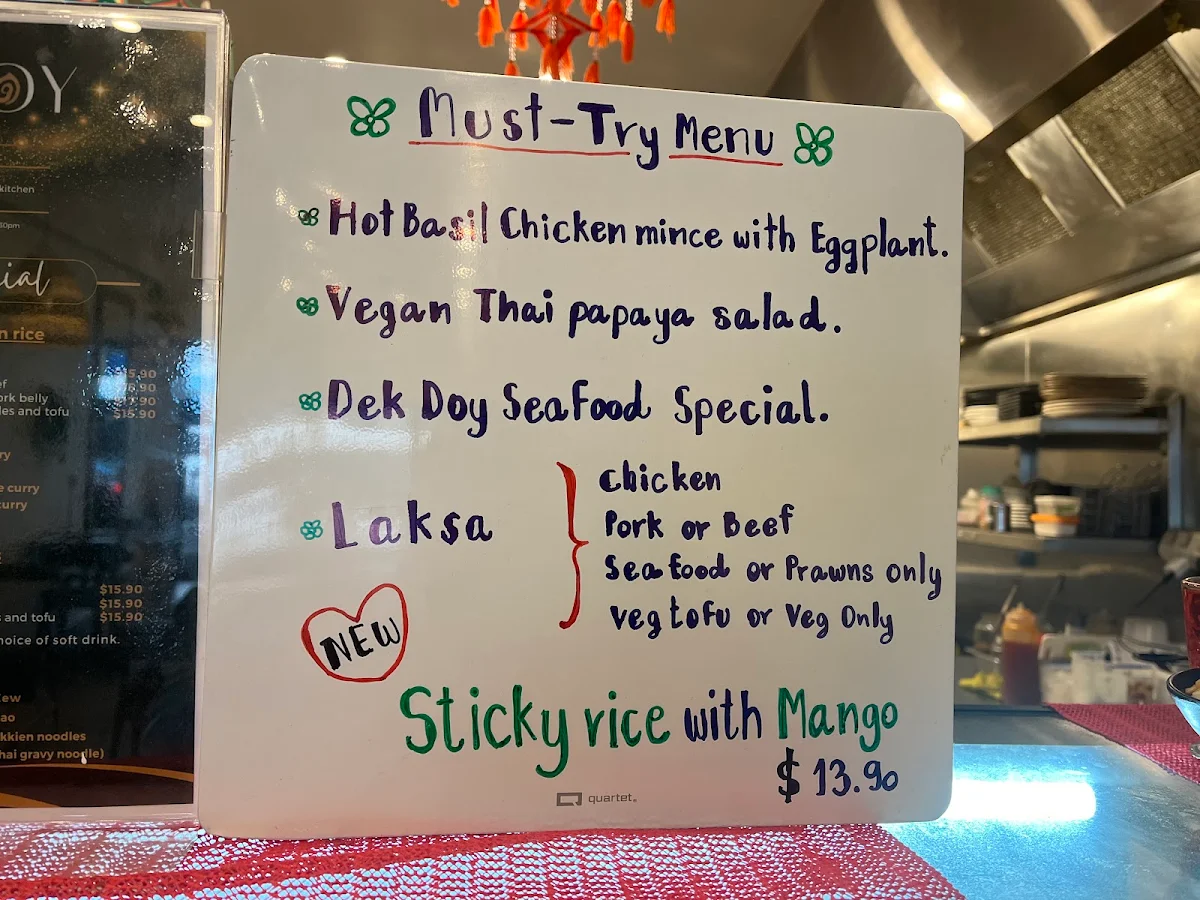 OY
kitchen
ial
n rice
$15.90
ork belly
les and tofu
$15.90
ry
e curry
curry
$15.90
$15.90
and tofu $15.90
hoice of soft drink.
ao
kkien noodles
hai gravy noodle)
Must-Try Menu
Hot Basil Chicken mince with Eggplant.
Vegan Thai papaya salad.
Dek Doy SeaFood Special.
Laksa
Chicken
Pork or Beef
Seafood or Prawns only
Veg tofu or Veg Only
NEW
Sticky rice with Mango
$13.90
quartet